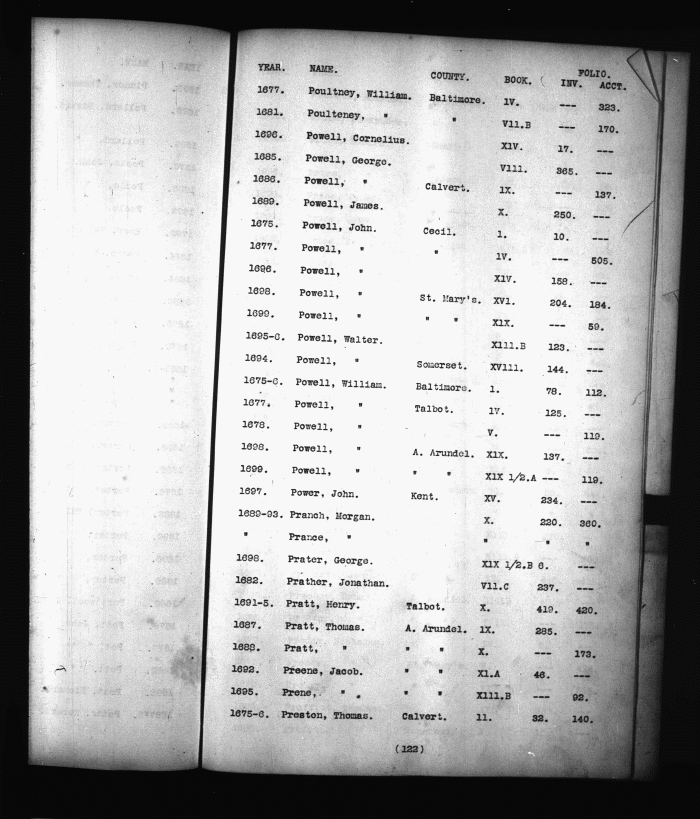 FOLIO.
YEAR. NAME. COUNTY. BOOK. INV. ACCT.
1677. Poultney, William. Baltimore. 1V. --- 323.
1681. Poulteney, " " V11.B --- 170.
1696. Powell, Cornelius. X1V. 17. ---
1685. Powell, George. V111. 365. ---
1686. Powell, " Calvert. 1X. --- 137.
1689. Powell, James. X. 250. ---
1675. Powell, John. Cecil. 1. 10. ---
1677. Powell, " " 1V. --- 505.
1696. Powell, " X1V. 158. ---
1698. Powell, " St. Mary's. XV1. 204. 184.
1699. Powell, " " " X1X. --- 59.
1695-6. Powell, Walter. X111.B 123. ---
1694. Powell, " Somerset. XV111. 144. ---
1675-6. Powell, William. Baltimore. 1. 78. 112.
1677. Powell, " Talbot. 1V. 125. ---
1678. Powell, " V. --- 119.
1698. Powell, " A. Arundel. X1X. 137. ---
1699. Powell, " " " X1X 1/2.A --- 119.
1697. Power, John. Kent. XV. 234. ---
1689-93. Pranch, Morgan. X. 220. 360.
" Prance, " " " "
1698. Prater, George. X1X 1/2.B 6. ---
1682. Prather, Jonathan. V11.C 237. ---
1691-5. Pratt, Henry. Talbot. X. 419. 420.
1687. Pratt, Thomas. A. Arundel. 1X. 285. ---
1688. Pratt, " " " X. --- 173.
1692. Preene, Jacob. " " X1.A 46. ---
1695. Prene, " . " " X111.B --- 92.
1675-6. Preston, Thomas. Calvert. 11. 32. 140.
(122)